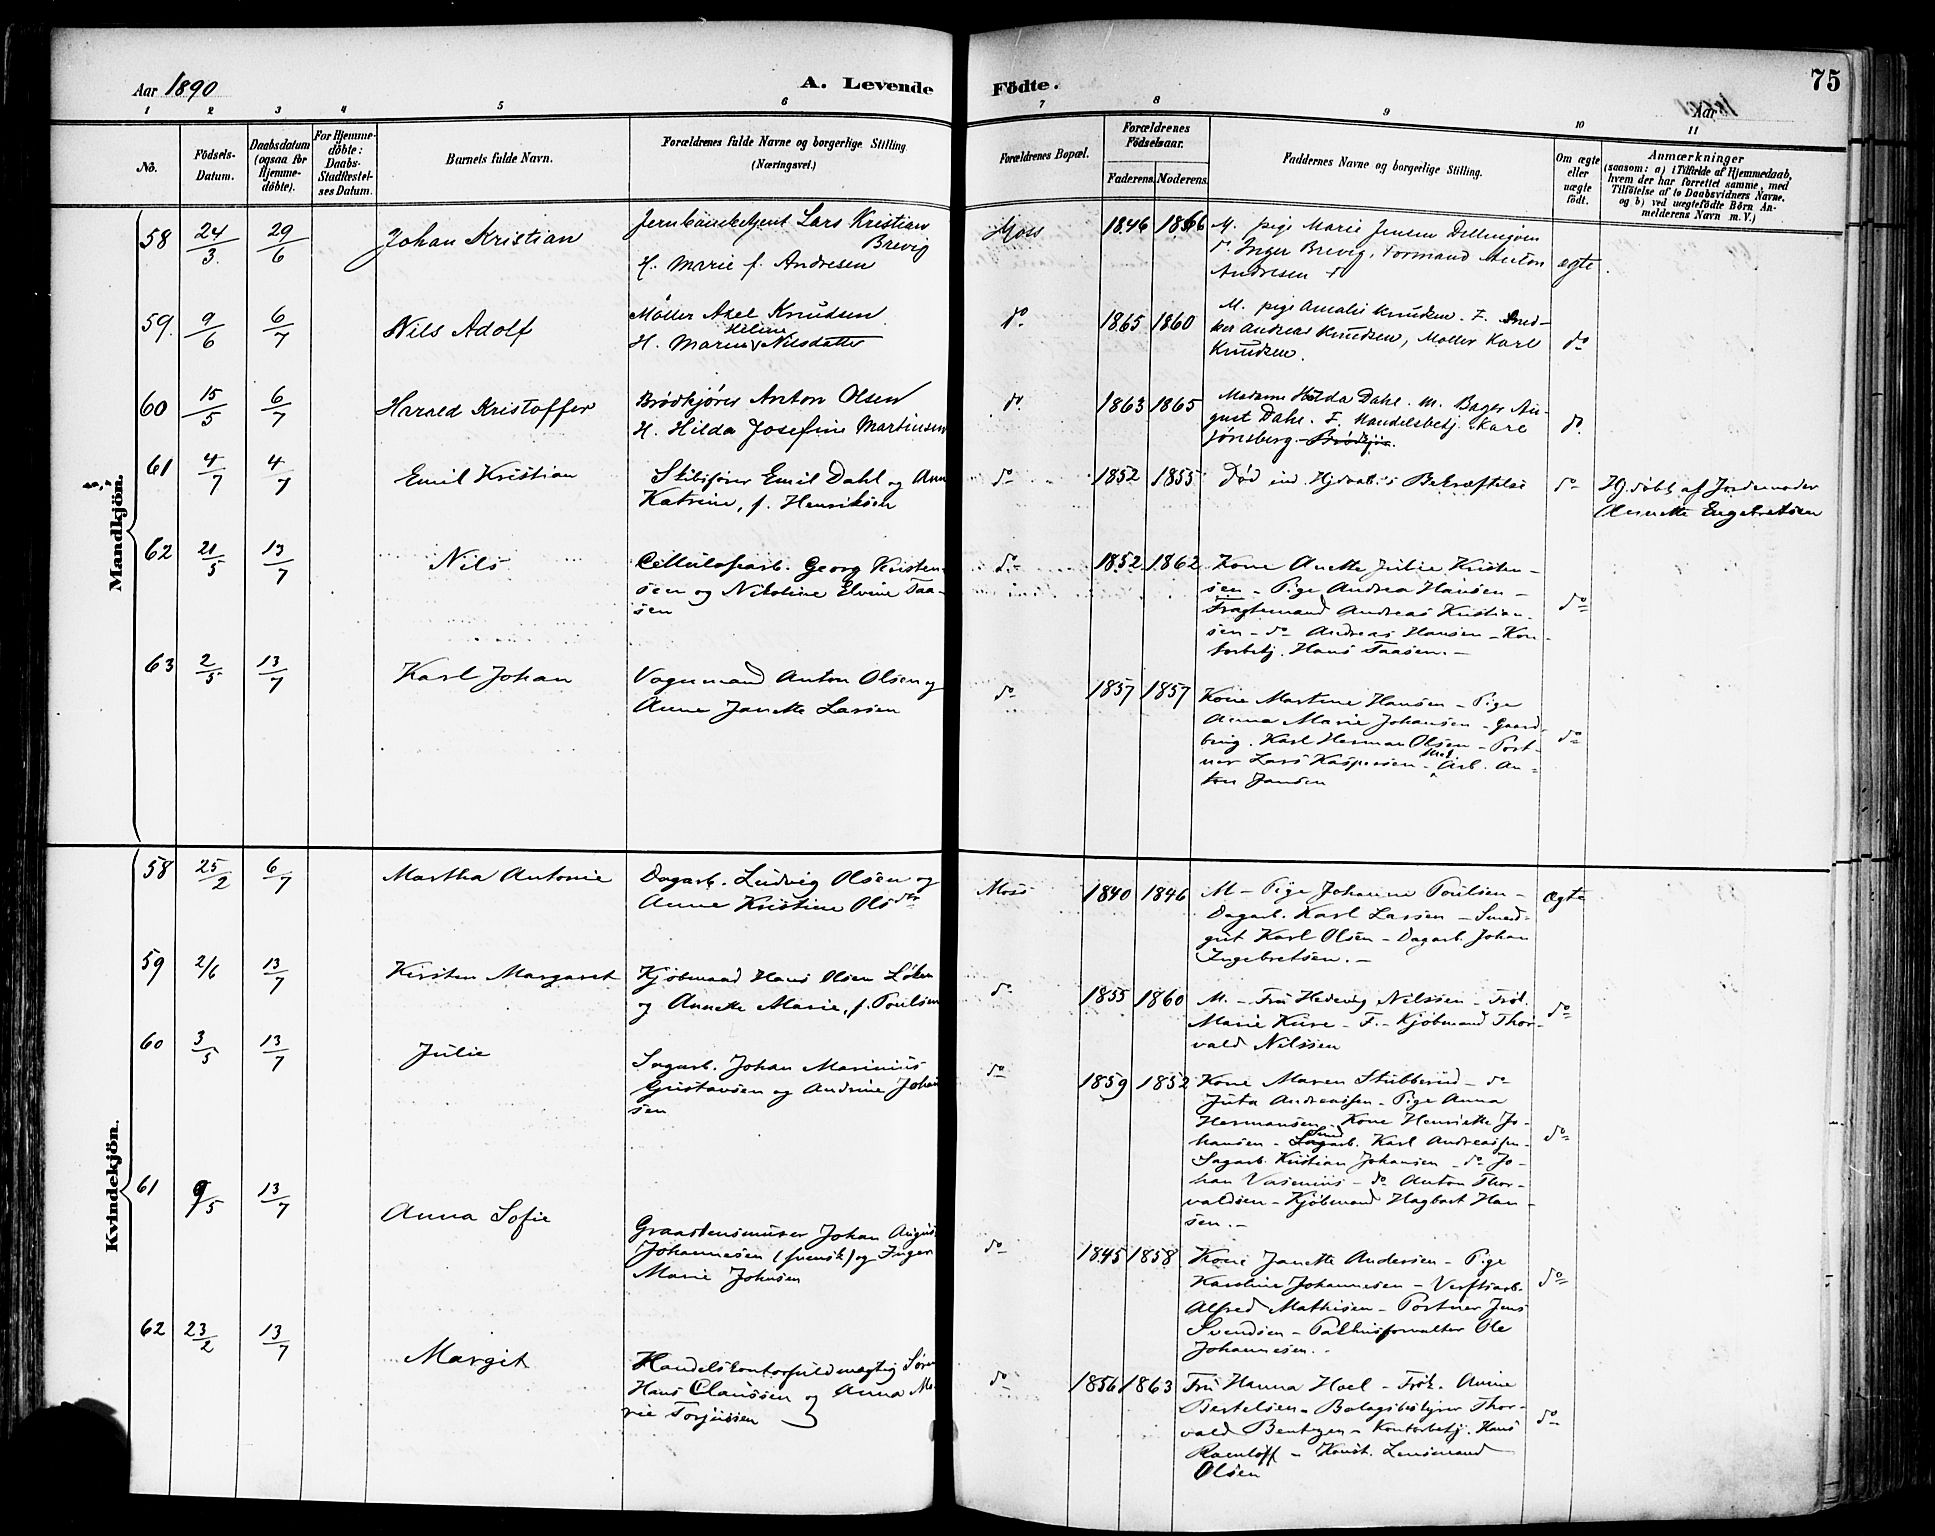 Aar 1890
A. Levende
Födte.
75
Aar
1 2 3 4 5 6 7 8 9 10 11
No.
Födsels-Datum.
Daabsdatum (ogsaa for Hjemmedöbte).
For Hjemmedöbte: Daabs-Stadfæstelses Datum.
Barnets fulde Navn.
Forældrenes fulde Navne og borgerlige Stilling. (Næringsvei.)
Forældrenes Bopæl.
Forældrenes Födselsaar.
Faderens. Moderens.
Faddernes Navne og borgerlige Stilling.
Om ægte eller uægte födt.
Anmærkninger
(saasom: a) i Tilfælde af Hjemmedaab, hvem der har forrettet samme, med Tilföielse af to Daabsvidners Navne, og b) ved uægtefödte Börn Anmelderens Navn m. V.)
Mandkjön.
58 24/3 29/6 Johan Kristian
Jernbanebetjent Lars Kristian
Brevig
H. Marie f. Andresen
Moss 1846 1866
M. pige Marie Jensen
do Inger Brevig, Formand Anton
Andresen
ægte
59. 9/6 6/7 Nils Adolf
Møller Axel Knudsen
H. Marie Helene Nilsdatter
do 1865 1860
M. pige Amalie Knudsen. F. Sned-
ker Andreas Knudsen, Møller Karl
Knudsen.
do
60 15/5 6/7 Harald Kristoffer
Brødkjører Anton Olsen
H. Hilda Josefine Martinsen
do 1863 1865
Madame Hilda Dahl. M. Bager Au-
gust Dahl. F. Handelsbetj. Karl
Jönsberg.
do
61 4/7 4/7 Emil Kristian
Skibsfører Emil Dahl og Ann
Katrine, f. Henriksen
do 1852 1855
Død ind. Hjdaab.s Bekræftelse
do
Hj.döbt af Jordemoder
Annette Engebretsen
62 21/5 13/7 Nils
Cellulosearb. Georg Kristen-
sen og Nikoline Elvine Taa-
sen
do 1852 1862
Kone Anette Julie Kristen-
sen - Pige Andrea Hansen -
Fragtemand Andreas Kristian-
sen - do Andreas Hansen - Kon-
torbetj. Hans Taasen. -
do
63 2/5 13/7 Karl Johan
Vognmand Anton Olsen og
Anne Janette Larsen
do 1857 1857
Kone Martine Hansen - Pige
Anna Marie Johansen - Gaard-
brug. Karl Herman Olsen - Port-
ner Lars Kaspersen - Arb. An-
ton Jansen
do
Kvindekjön.
58 25/2 6/7 Martha Antonie
Dagarb. Ludvig Olsen og
Anne Kristine Olsdtr
Moss 1840 1846
M - Pige Johanne Poulsen -
Dagarb. Karl Larsen - Smed-
gut Karl Olsen - Dagarb. Johan
Ingebretsen. -
Ægte
59 2/6 13/7 Kirsten Margaret
Kjöbmand Hans Olsen Løken
og Annette Marie, f. Poulsen
do 1855 1860
M. - Fru Hedevig Nilssen - Frøk.
Marie Kure - F. - Kjöbmand Thor-
vald Nilssen
do
60 3/5 13/7 Julie
Sagarb. Johan Marinius
Gustavsen og Andrine Johan
sen
do 1859 1852
Kone Maren Stubberud - do
Juta Andreassen - Pige Anna
Hermansen - Kone Henriette Jo-
hansen - Sagarb. Karl Andreassen -
Sagarb. Kristian Johansen - do Jo-
han - do Anton Thor-
valdsen - Kjöbmand Hagbart Han-
sen. -
do
61 9/5 13/7 Anna Sofie
Graastensmurer Johan August
Johannesen (svensk) og Inger
Marie Johnsen
do 1845 1858
Kone Janette Andersen - Pige
Karoline Johannesen - Verftsarb.
Alfred Mathisen - Portner Jens
Svendsen - Pakhusforvalter Ole
Johannesen. -
do
62 23/2 13/7 Margit
Handelskontorfuldmægtig Søren
Hans Claussen og Anna Ma-
rie Torjussen
do 1856 1863
Fru Hanna Hoel - Frøk. Anine
Bertelsen - Bolagsbestyrer Thor-
vald Bentzen - Kontorbetj. Hans
Ramloff - Konst. Lensmand
Olsen
do